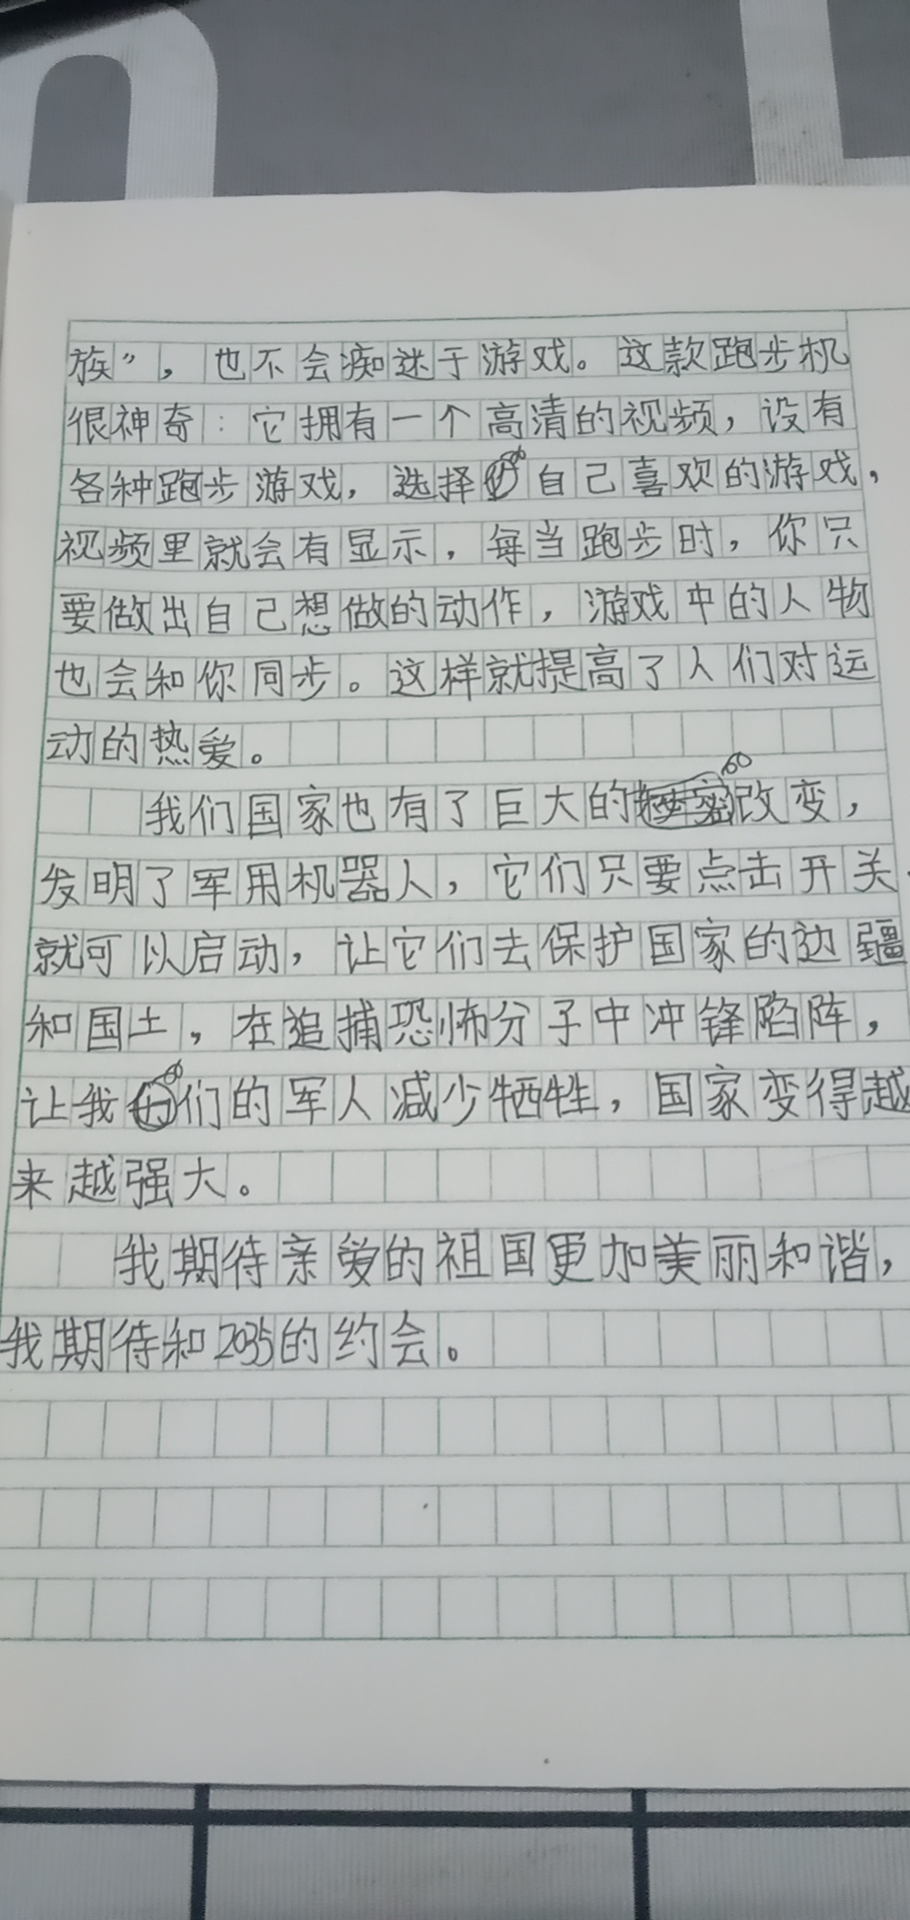 族”，也不会痴迷于游戏。这款跑步机
很神奇：它拥有一个高清的视频，设有
各种跑步游戏，选择自己喜欢的游戏，
视频里就会有显示，每当跑步时，你只
要做出自己想做的动作，游戏中的人物
也会和你同步。这样就提高了人们对运
动的热爱。
我们国家也有了巨大的改变，
发明了军用机器人，它们只要点击开关
就可以启动，让它们去保护国家的边疆
和国土，在追捕恐怖分子中冲锋陷阵，
让我们的军人减少牺牲，国家变得越
来越强大。
我期待亲爱的祖国更加美丽和谐，
我期待和2035的约会。